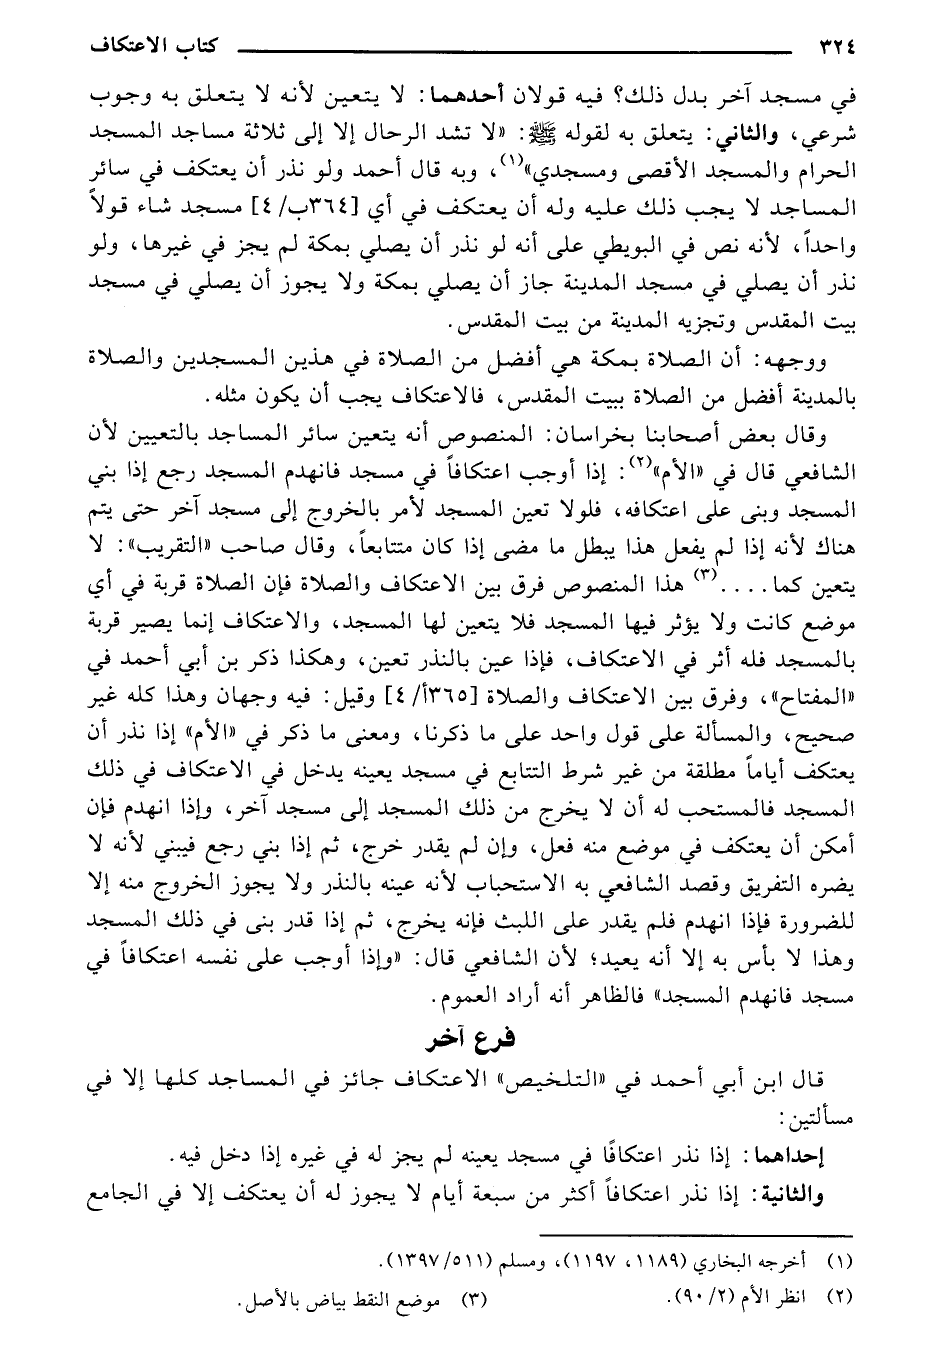 ٣٢٤ كتاب الاعتكاف
في مسجد آخر بدل ذلك؟ فيه قولان أحدهما: لا يتعين لأنه لا يتعلق به وجوب
شرعي، والثاني: يتعلق به لقوله ﷺ: «لا تشد الرحال إلا إلى ثلاثة مساجد المسجد
الحرام والمسجد الأقصى ومسجدي»(١)، وبه قال أحمد ولو نذر أن يعتكف في سائر
المساجد لا يجب ذلك عليه وله أن يعتكف في أي [٣٦٤ب/٤] مسجد شاء قولاً
واحداً، لأنه نص في البويطي على أنه لو نذر أن يصلي بمكة لم يجز في غيرها، ولو
نذر أن يصلي في مسجد المدينة جاز أن يصلي بمكة ولا يجوز أن يصلي في مسجد
بيت المقدس وتجزيه المدينة من بيت المقدس.
ووجهه: أن الصلاة بمكة هي أفضل من الصلاة في هذين المسجدين والصلاة
بالمدينة أفضل من الصلاة ببيت المقدس، فالاعتكاف يجب أن يكون مثله.
وقال بعض أصحابنا بخراسان: المنصوص أنه يتعين سائر المساجد بالتعيين لأن
الشافعي قال في «الأم»(٢): إذا أوجب اعتكافاً في مسجد فانهدم المسجد رجع إذا بني
المسجد وبنى على اعتكافه، فلولا تعين المسجد لأمر بالخروج إلى مسجد آخر حتى يتم
هناك لأنه إذا لم يفعل هذا يبطل ما مضى إذا كان متتابعاً، وقال صاحب «التقريب»: لا
يتعين كما....(٣) هذا المنصوص فرق بين الاعتكاف والصلاة فإن الصلاة قربة في أي
موضع كانت ولا يؤثر فيها المسجد فلا يتعين لها المسجد، والاعتكاف إنما يصير قربة
بالمسجد فله أثر في الاعتكاف، فإذا عين بالنذر تعين، وهكذا ذكر بن أبي أحمد في
«المفتاح»، وفرق بين الاعتكاف والصلاة [٣٦٥أ/٤] وقيل: فيه وجهان وهذا كله غير
صحيح، والمسألة على قول واحد على ما ذكرنا، ومعنى ما ذكر في «الأم» إذا نذر أن
يعتكف أياماً مطلقة من غير شرط التتابع في مسجد يعينه يدخل في الاعتكاف في ذلك
المسجد فالمستحب له أن لا يخرج من ذلك المسجد إلى مسجد آخر، وإذا انهدم فإن
أمكن أن يعتكف في موضع منه فعل، وإن لم يقدر خرج، ثم إذا بني رجع فيبني لأنه لا
يضره التفريق وقصد الشافعي به الاستحباب لأنه عينه بالنذر ولا يجوز الخروج منه إلا
للضرورة فإذا انهدم فلم يقدر على اللبث فإنه يخرج، ثم إذا قدر بنى في ذلك المسجد
وهذا لا بأس به إلا أنه يعيد؛ لأن الشافعي قال: «وإذا أوجب على نفسه اعتكافاً في
مسجد فانهدم المسجد» فالظاهر أنه أراد العموم.
فرع آخر
قال ابن أبي أحمد في «التلخيص» الاعتكاف جائز في المساجد كلها إلا في
مسألتين:
إحداهما: إذا نذر اعتكافًا في مسجد يعينه لم يجز له في غيره إذا دخل فيه.
والثانية: إذا نذر اعتكافاً أكثر من سبعة أيام لا يجوز له أن يعتكف إلا في الجامع
(١) أخرجه البخاري (١١٨٩، ١١٩٧)، ومسلم (١٣٩٧/٥١١).
(٢) انظر الأم (٩٠/٢). (٣) موضع النقط بياض بالأصل.